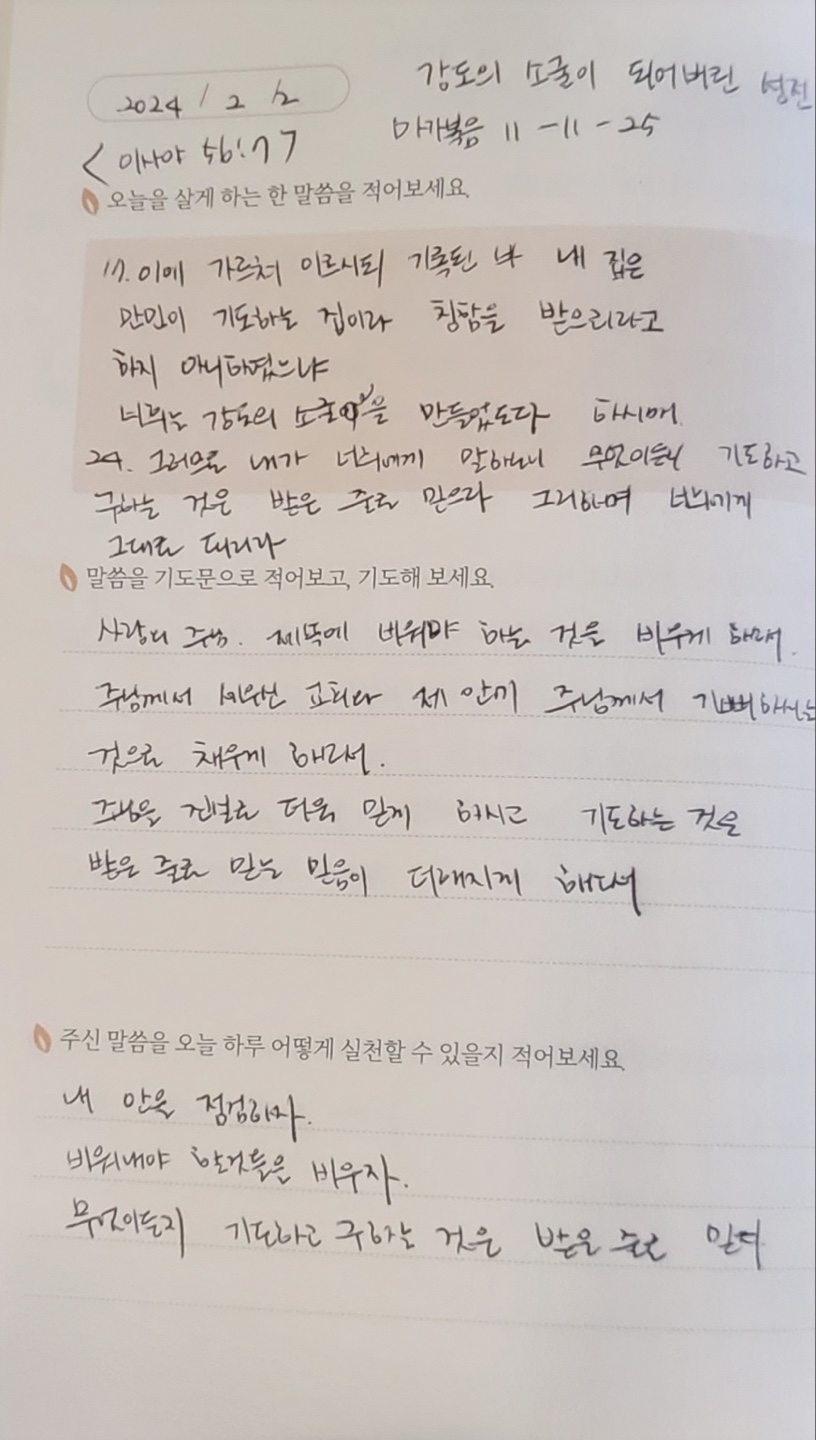 강도의 소굴이 되어버린 성전
2024 / 2 /2
마가복음 11 - 11 - 25
< 이사야 56:7 >
오늘을 살게 하는 한 말씀을 적어보세요.
17. 이에 가르쳐 이르시되 기록된 바 내 집은
만민이 기도하는 집이라 칭함을 받으리라고
하지 아니하였느냐
너희는 강도의 소굴을 만들었도다 하시매
24. 그러므로 내가 너희에게 말하노니 무엇이든지 기도하고
구하는 것은 받은 줄로 믿으라 그리하며 너희에게
그대로 되리라
말씀을 기도문으로 적어보고, 기도해 보세요.
사랑의 주님. 제 비워야 하는 것을 비우게 하소서.
주님께서 세우신 교회와 제 안에 주님께서 기뻐하시는
것으로 채우게 하소서.
주님을 더욱 믿게 하시고 기도하는 것을
받은 줄로 믿는 믿음이 더해지게 하소서
주신 말씀을 오늘 하루 어떻게 실천할 수 있을지 적어보세요.
내 안을 점검하자.
비워내야 할것들은 비우자.
무엇이든지 기도하고 구하는 것은 받은 줄로 믿다